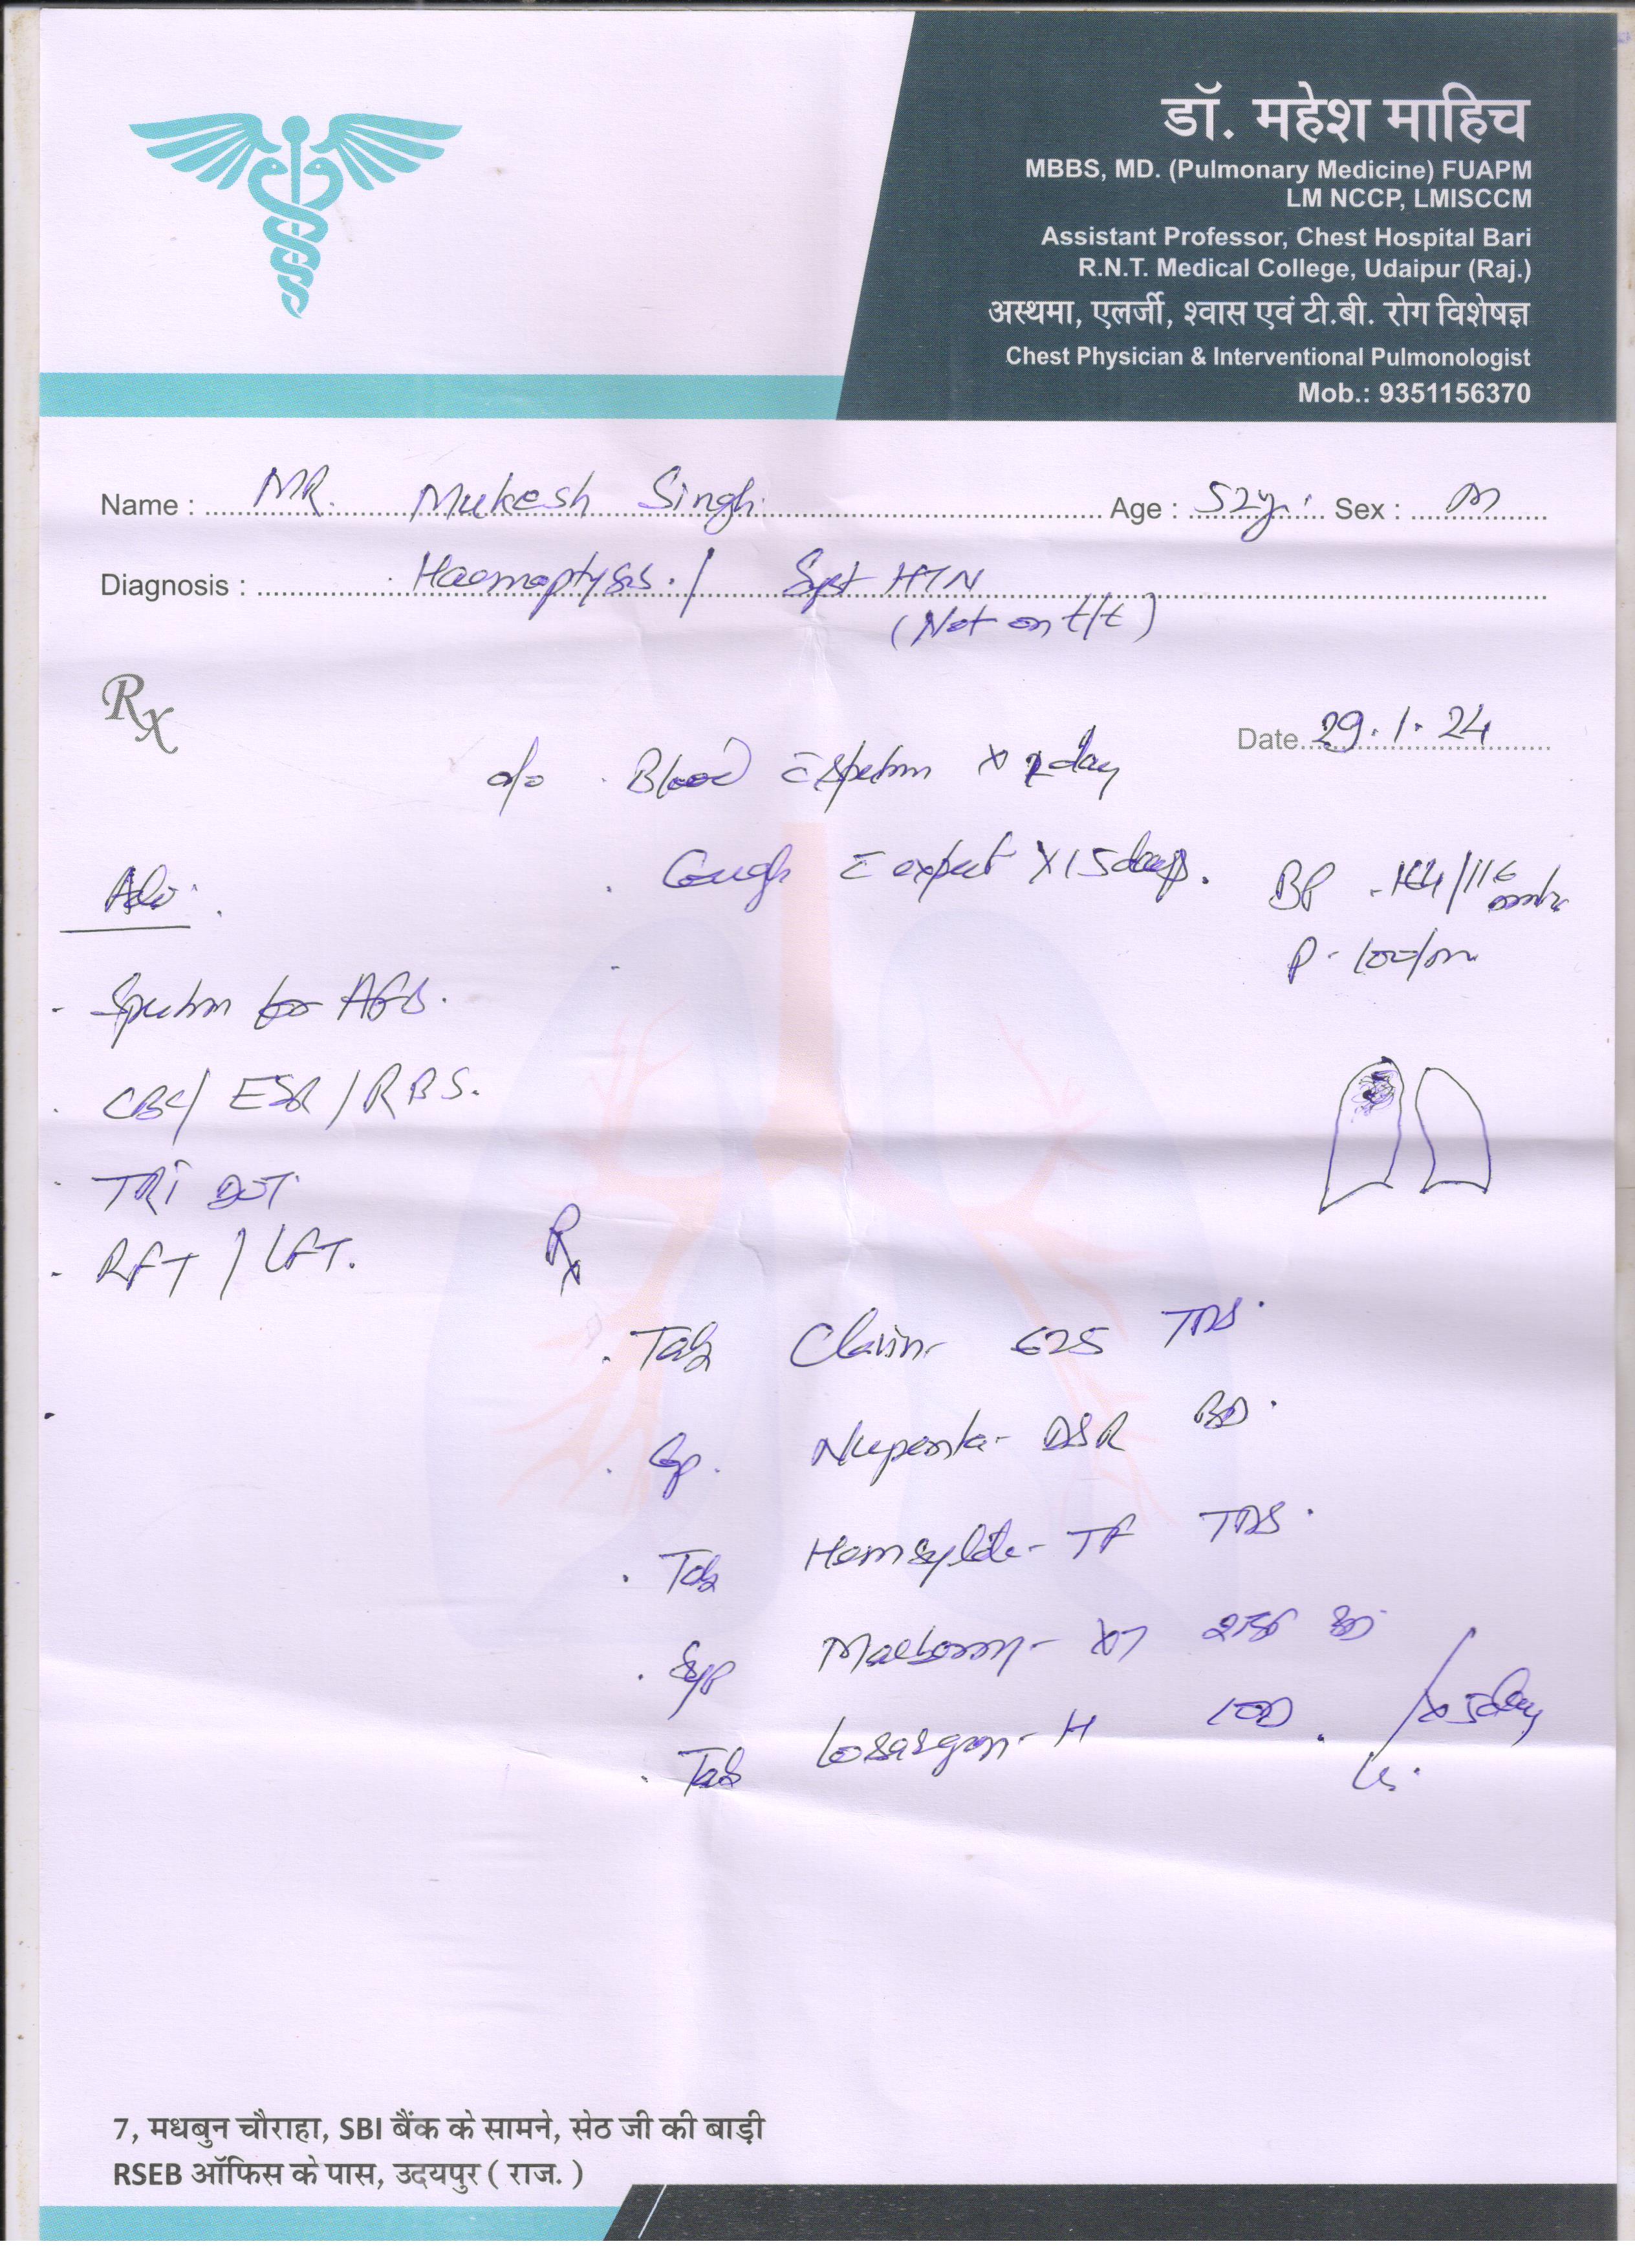 डॉ. महेश माहिच
MBBS, MD. (Pulmonary Medicine) FUAPM
LM NCCP, LMISCCM
Assistant Professor, Chest Hospital Bari
R.N.T. Medical College, Udaipur (Raj.)
अस्थमा, एलर्जी, श्वास एवं टी.बी. रोग विशेषज्ञ
Chest Physician & Interventional Pulmonologist
Mob.: 9351156370
Name : MR. Mukesh Singh Age : 52y Sex : M
Diagnosis : Haemoptysis / Syst HTN
(Not on t/t)
Rx
Date 29.1.24
Blood sputum day
Cough expect X 15 days.
BP /116
P - 100/m
Adv.
- Sputum for AFB.
. CBC / ESR / RBS.
- TRI DOT
- RFT / LFT.
Rx
. Tab 625 TDS
. Cp. DSR BD
. Tab TF TDS
. Syp BD
. Tab H
x 5 day
7, मधबुन चौराहा, SBI बैंक के सामने, सेठ जी की बाड़ी
RSEB ऑफिस के पास, उदयपुर ( राज. )